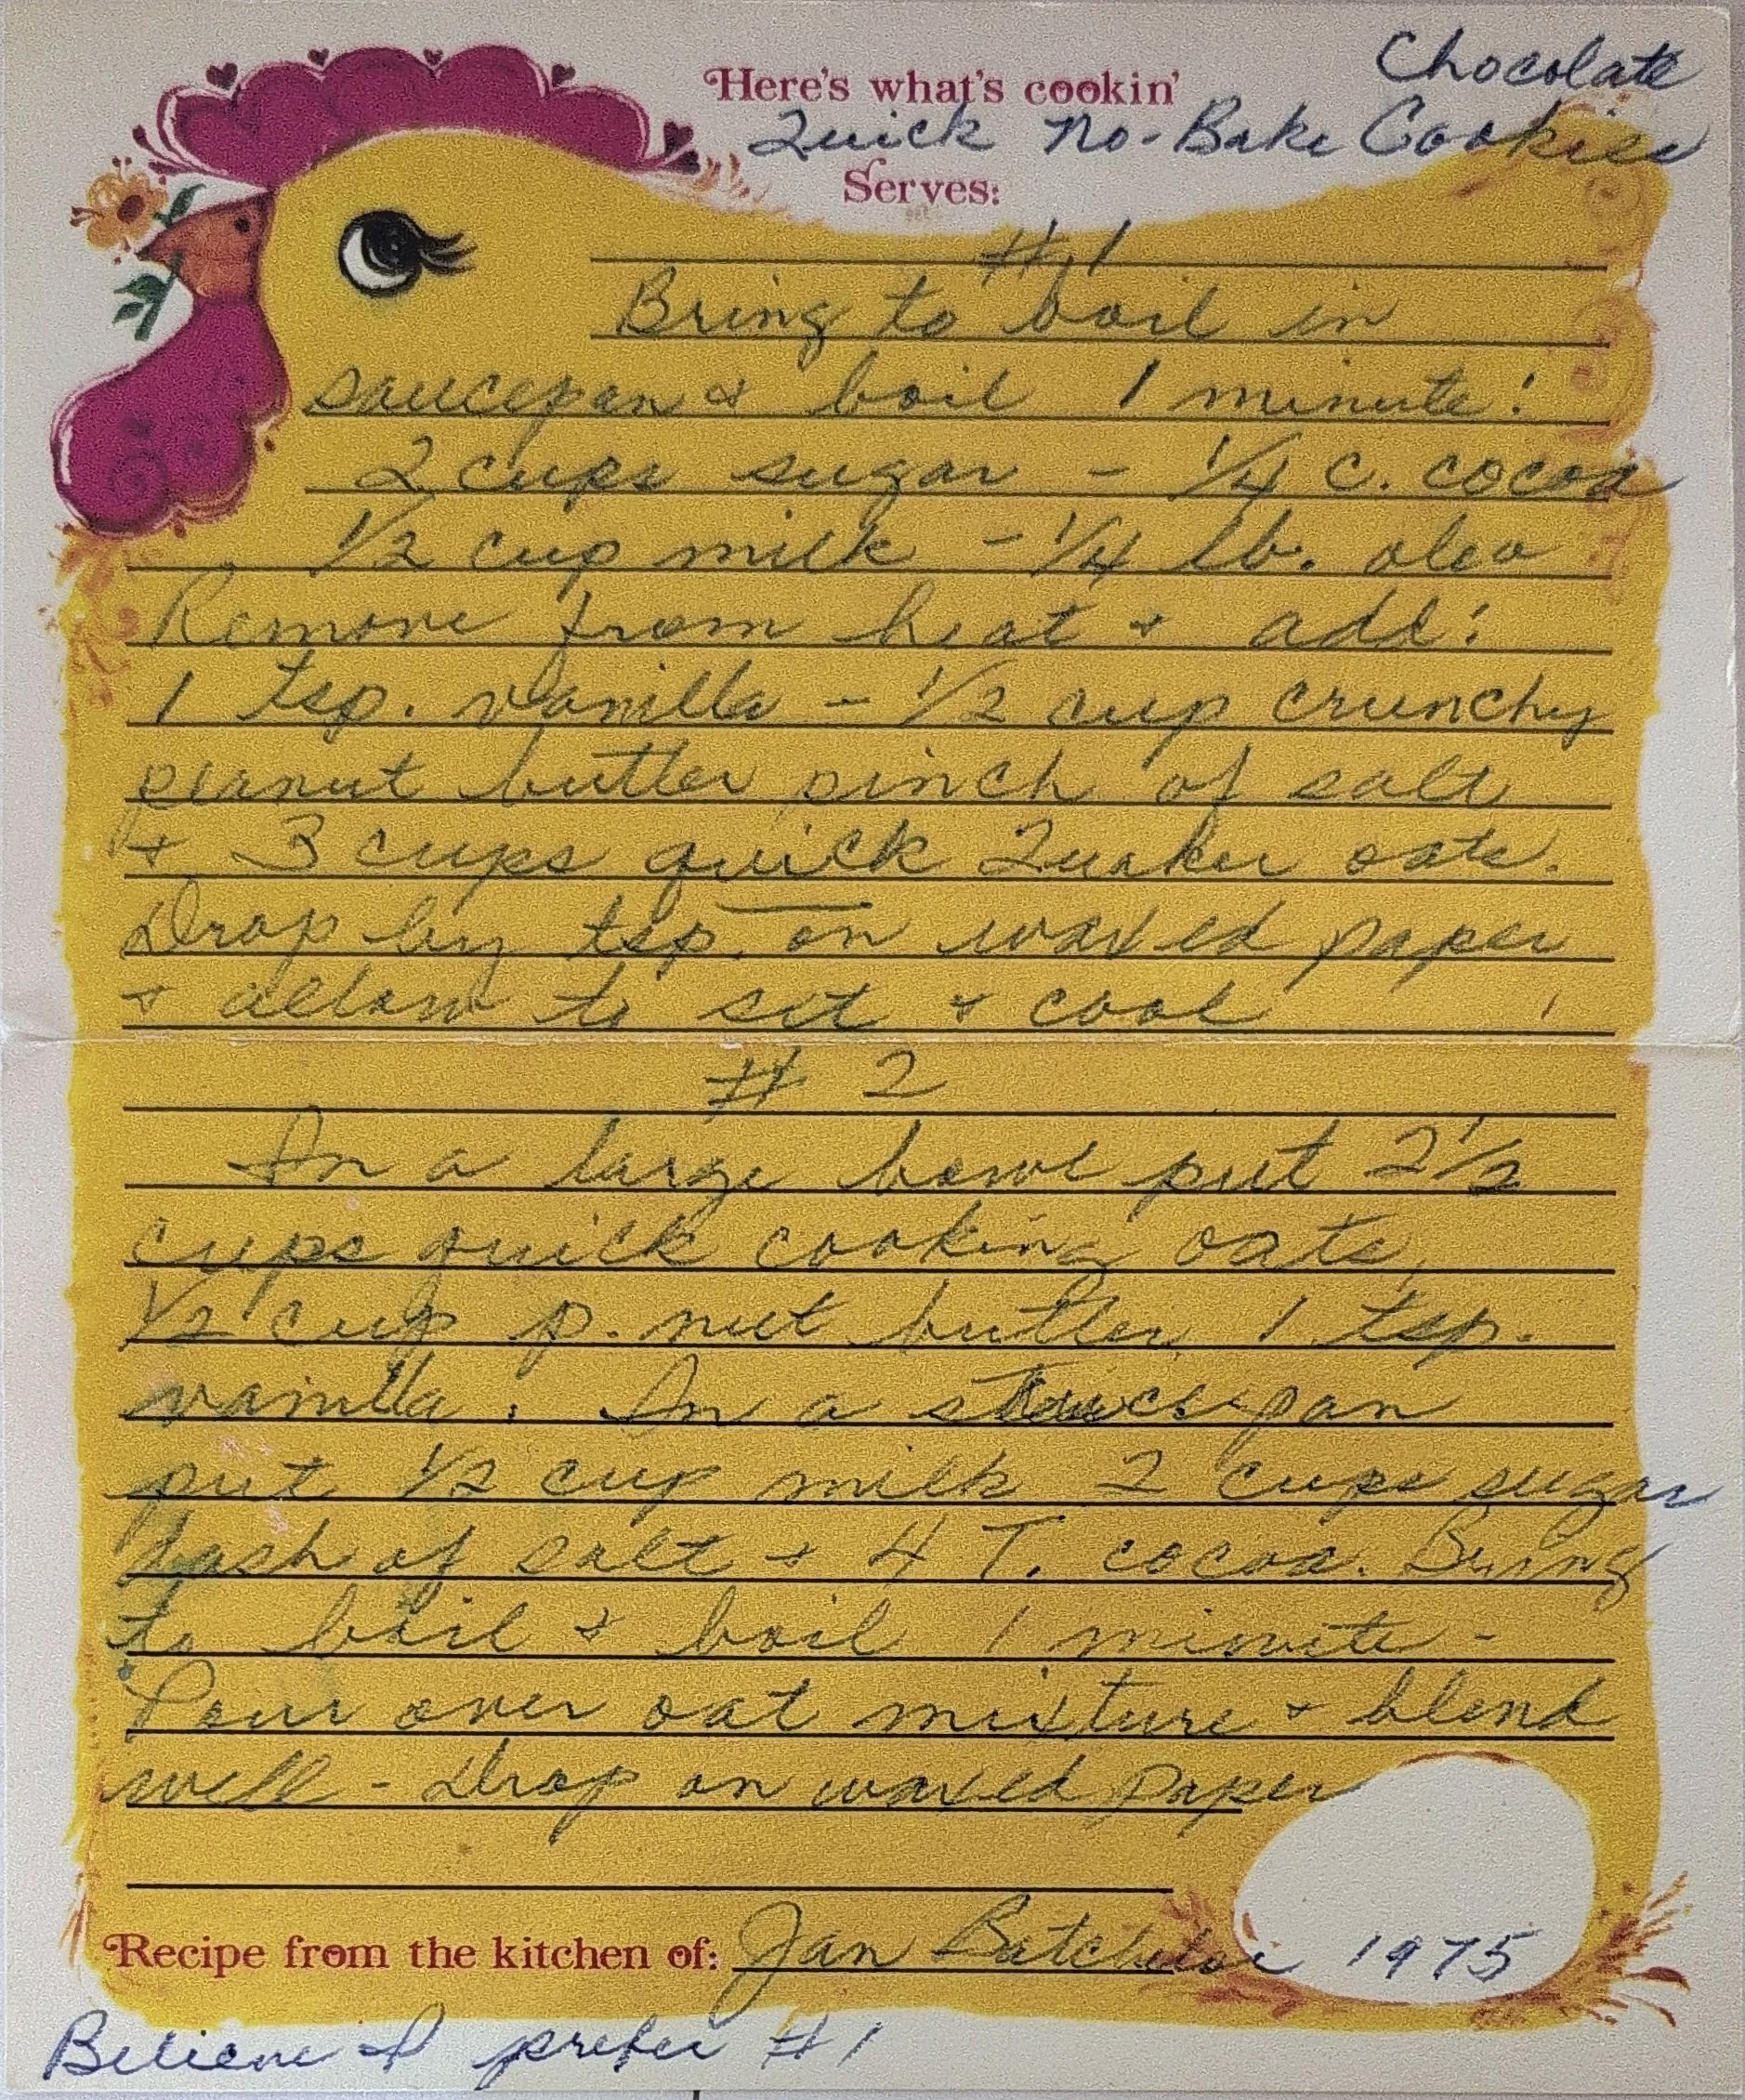 Chocolate
Here's what's cookin'
Quick No-Bake Cookies
Serves:
#1
Bring to boil in
saucepan & boil 1 minute:
2 cups sugar - 1/4 c. cocoa
1/2 cup milk - 1/4 lb. oleo
Remove from heat & add:
1 tsp. vanilla - 1/2 cup crunchy
peanut butter pinch of salt
& 3 cups quick Quaker oats.
Drop by tsp. on waxed paper
& allow to set & cool
# 2
In a large bowl put 2 1/2
cups quick cooking oats,
1/2 cup p. nut butter, 1 tsp.
vanilla. In a saucepan
put 1/2 cup milk 2 cups sugar
dash of salt & 4 T. cocoa. Bring
to boil & boil 1 minute -
Pour over oat mixture & blend
well - Drop on waxed paper
Recipe from the kitchen of: Jan Batchelor 1975
Believe I prefer #1